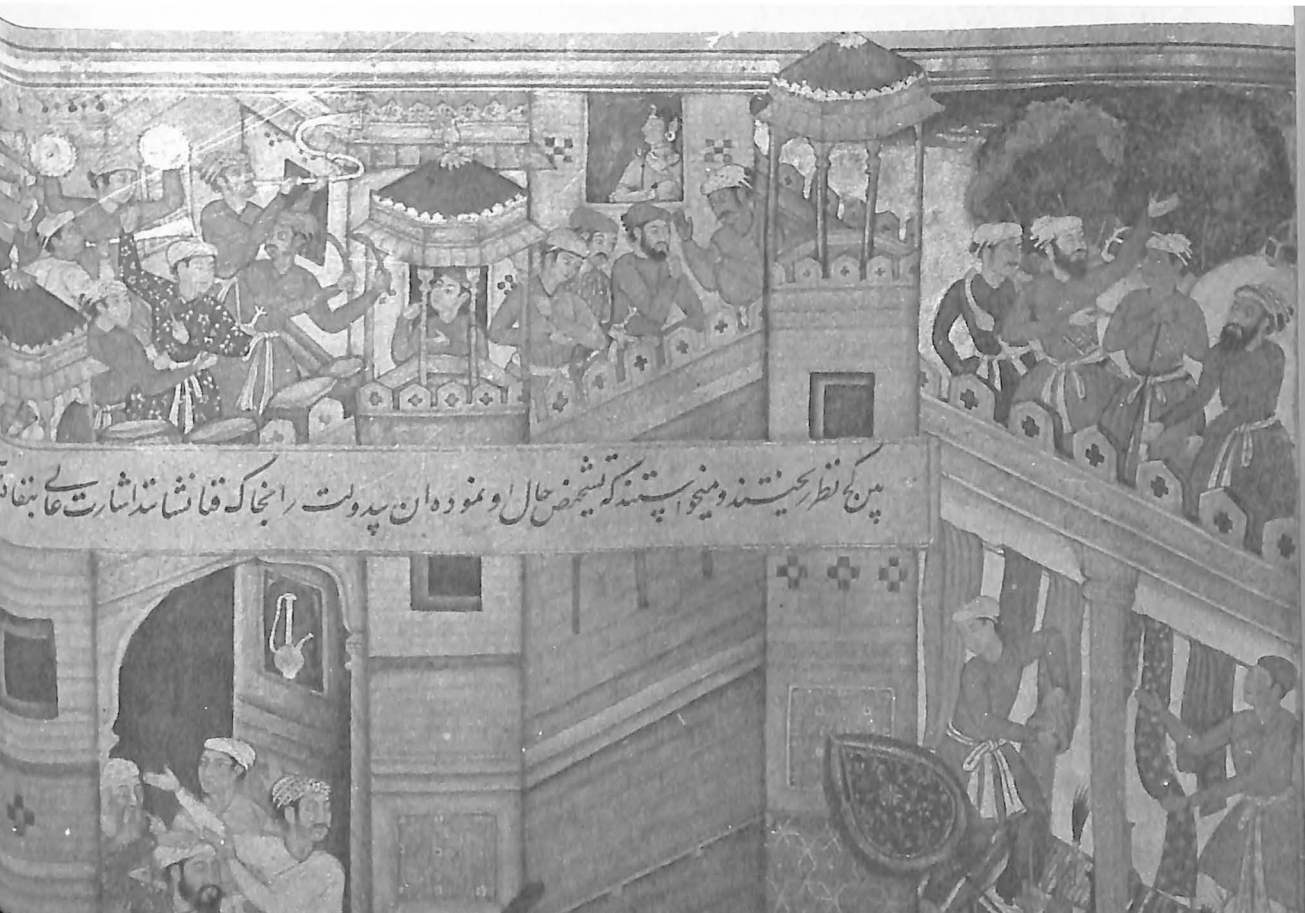 بین کج نظر ریختند و میخواستند که تشخیص حال او نموده ان بیدولت را بخاک فنا نشانند اشارت عالی بنفاذ